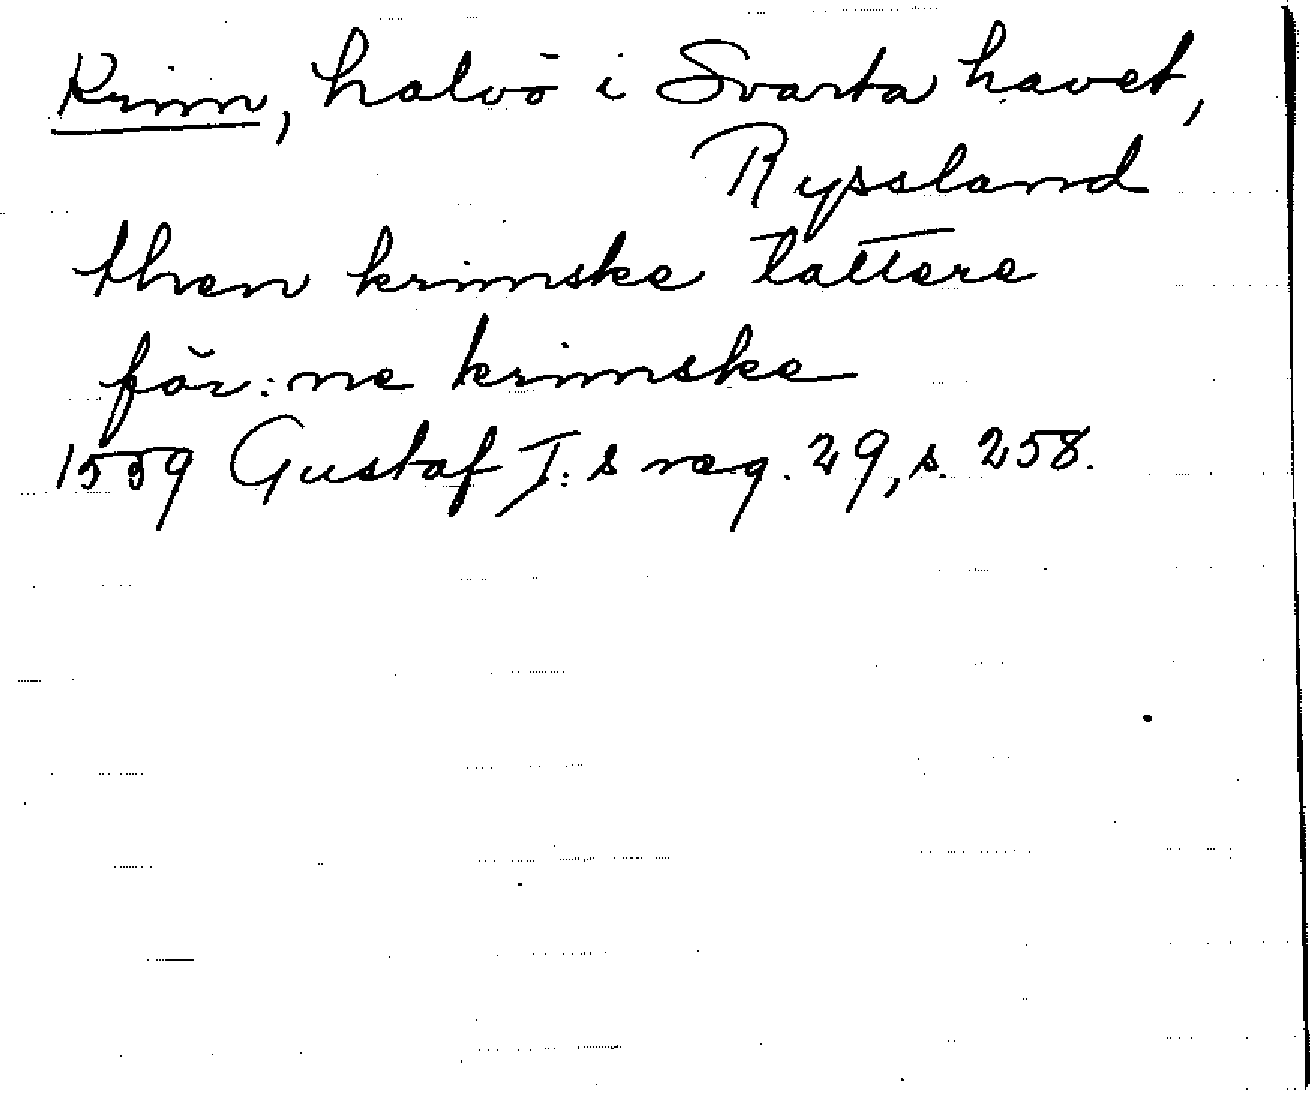 Krim, halvö i Svarta havet,
Ryssland
then krimske tattere
för:ne krimske
1559 Gustaf I:s reg. 29, s. 258.